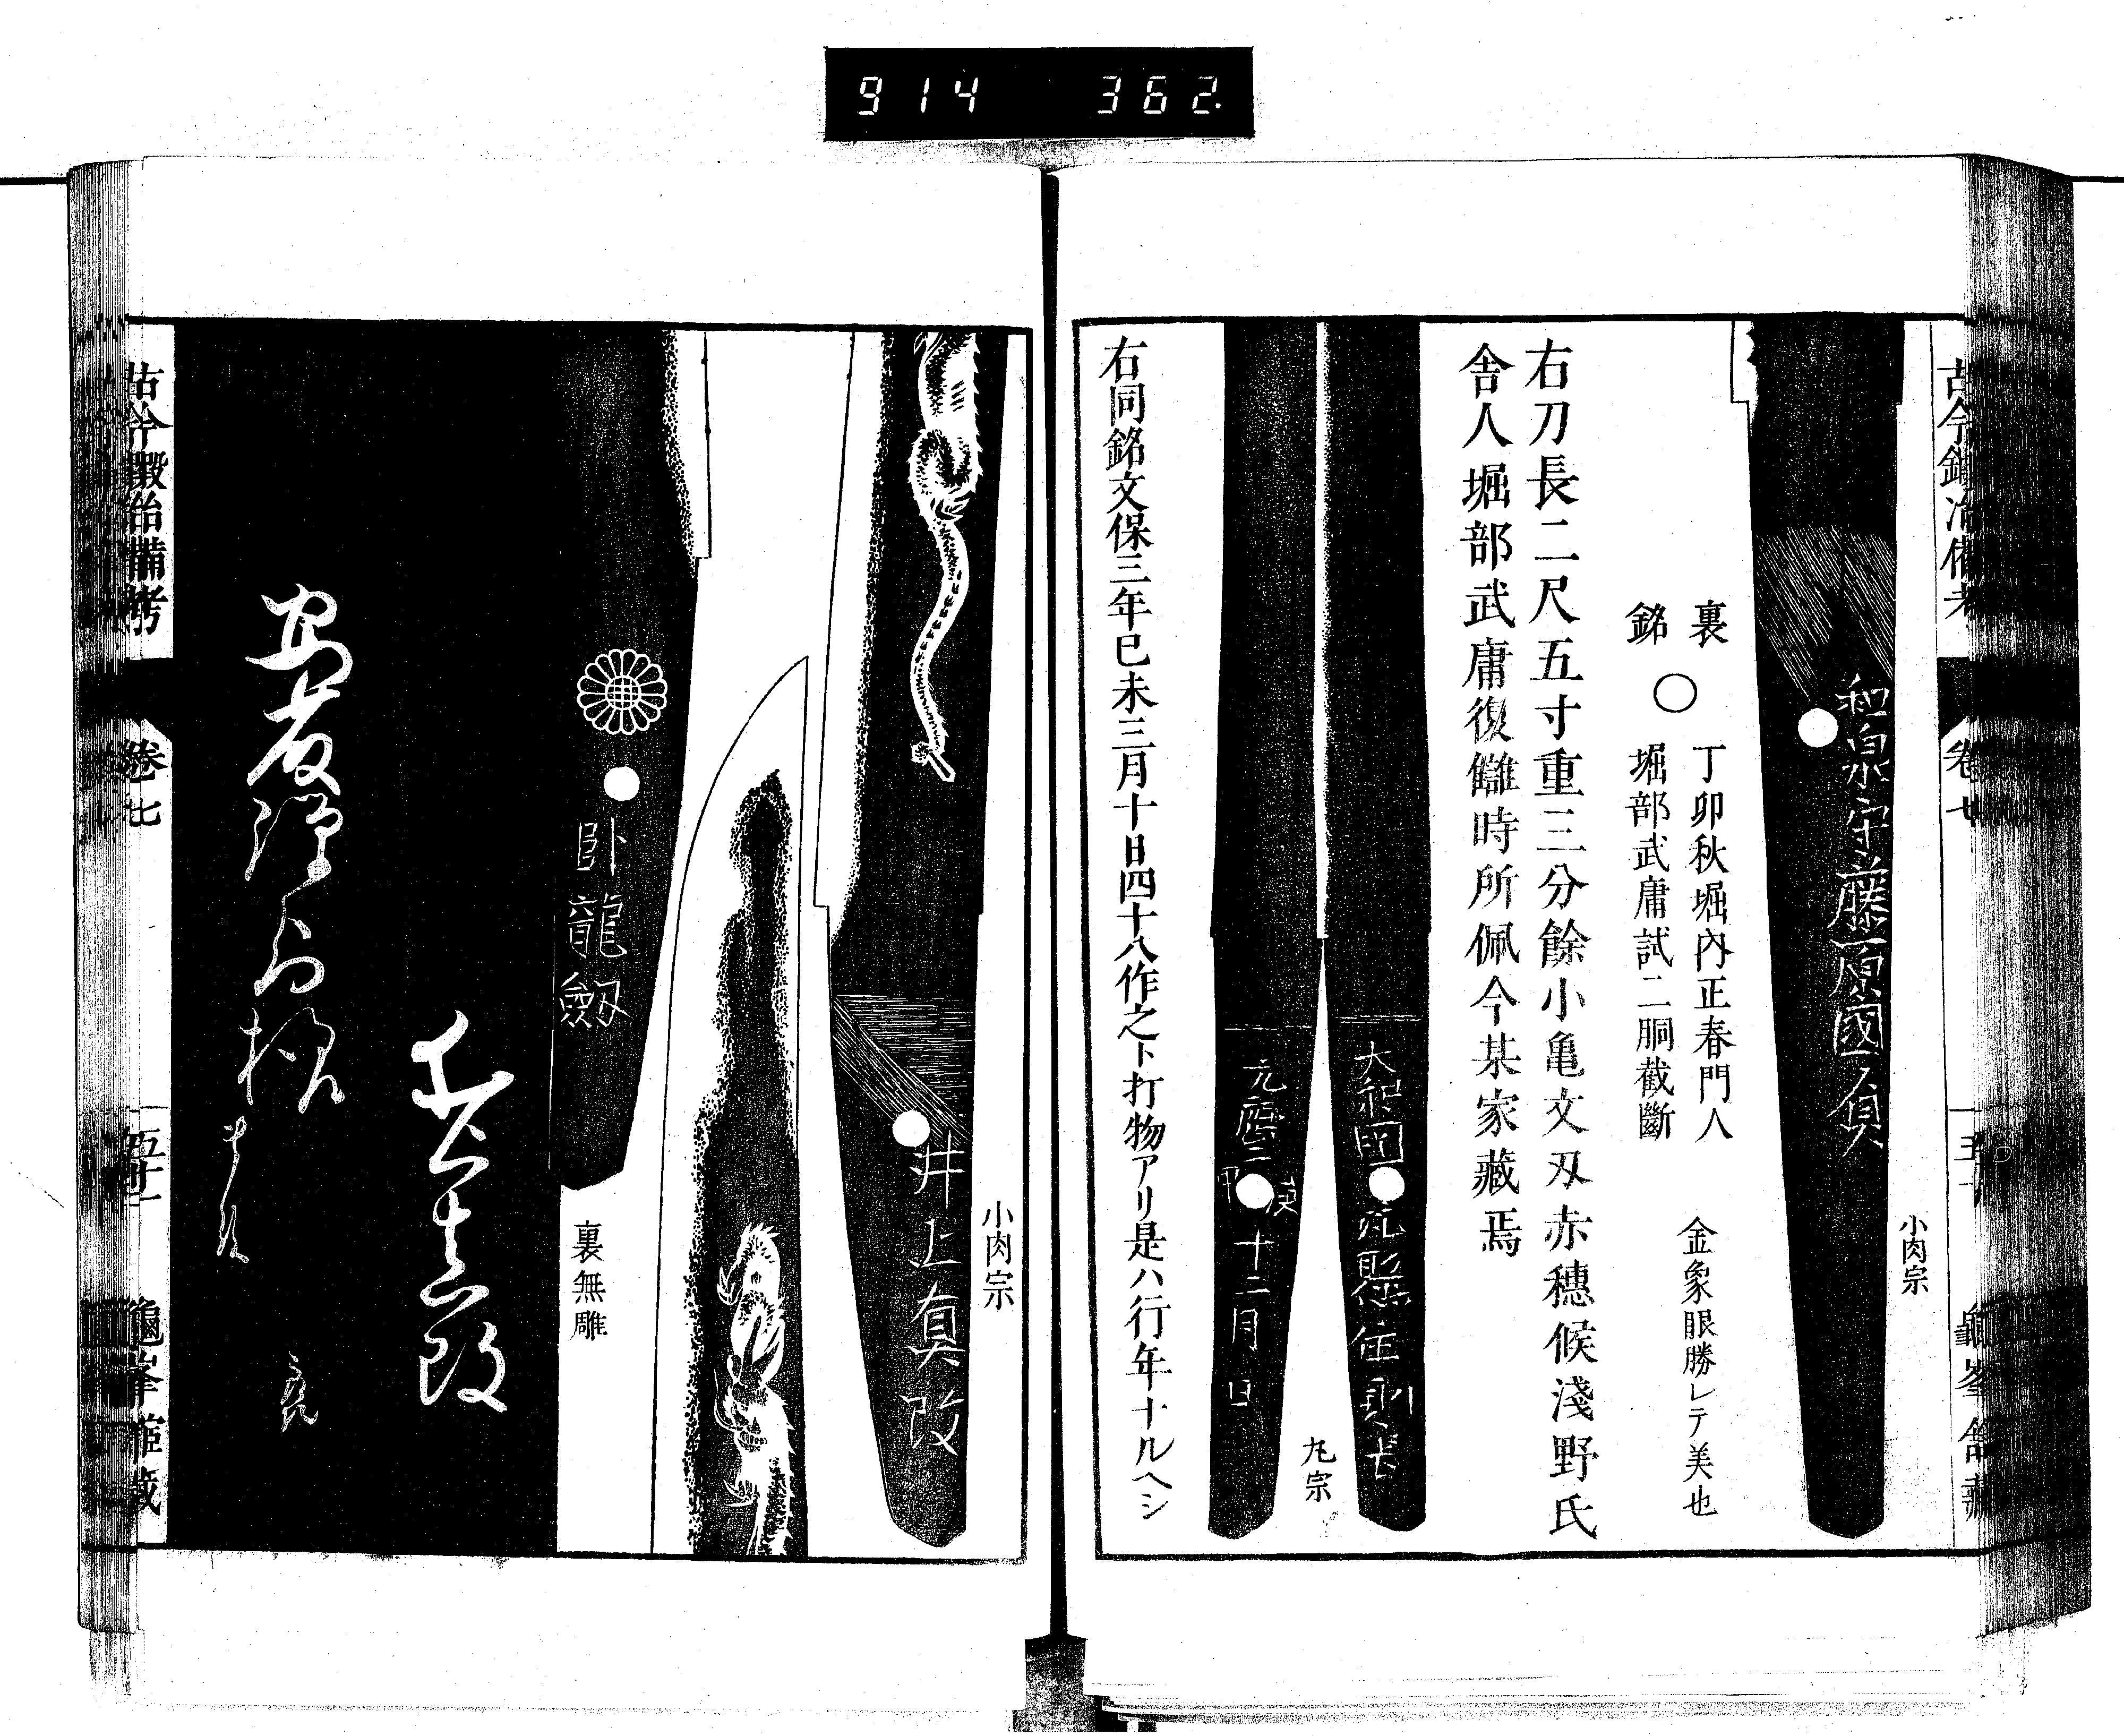 914 362
古今鍛冶備考
卷七
和泉守藤原國貞
小肉宗
裏銘
丁卯秋堀內正春門人
堀部武庸試二胴截斷
金象眼勝レテ美也
右刀長二尺五寸重三分餘小亀文刃赤穗候淺野氏
舎人堀部武庸復讎時所佩今某家藏焉
大和國
住則長
元應二
十二月日
尤宗
右同銘文保三年己未三月十日四十八作之ト打物アリ是ハ行年十ルヘシ
小肉宗
井上真改
臥龍劔
裏無雕
真改
古今鍛冶備考
卷七
五十一
龜峯館藏